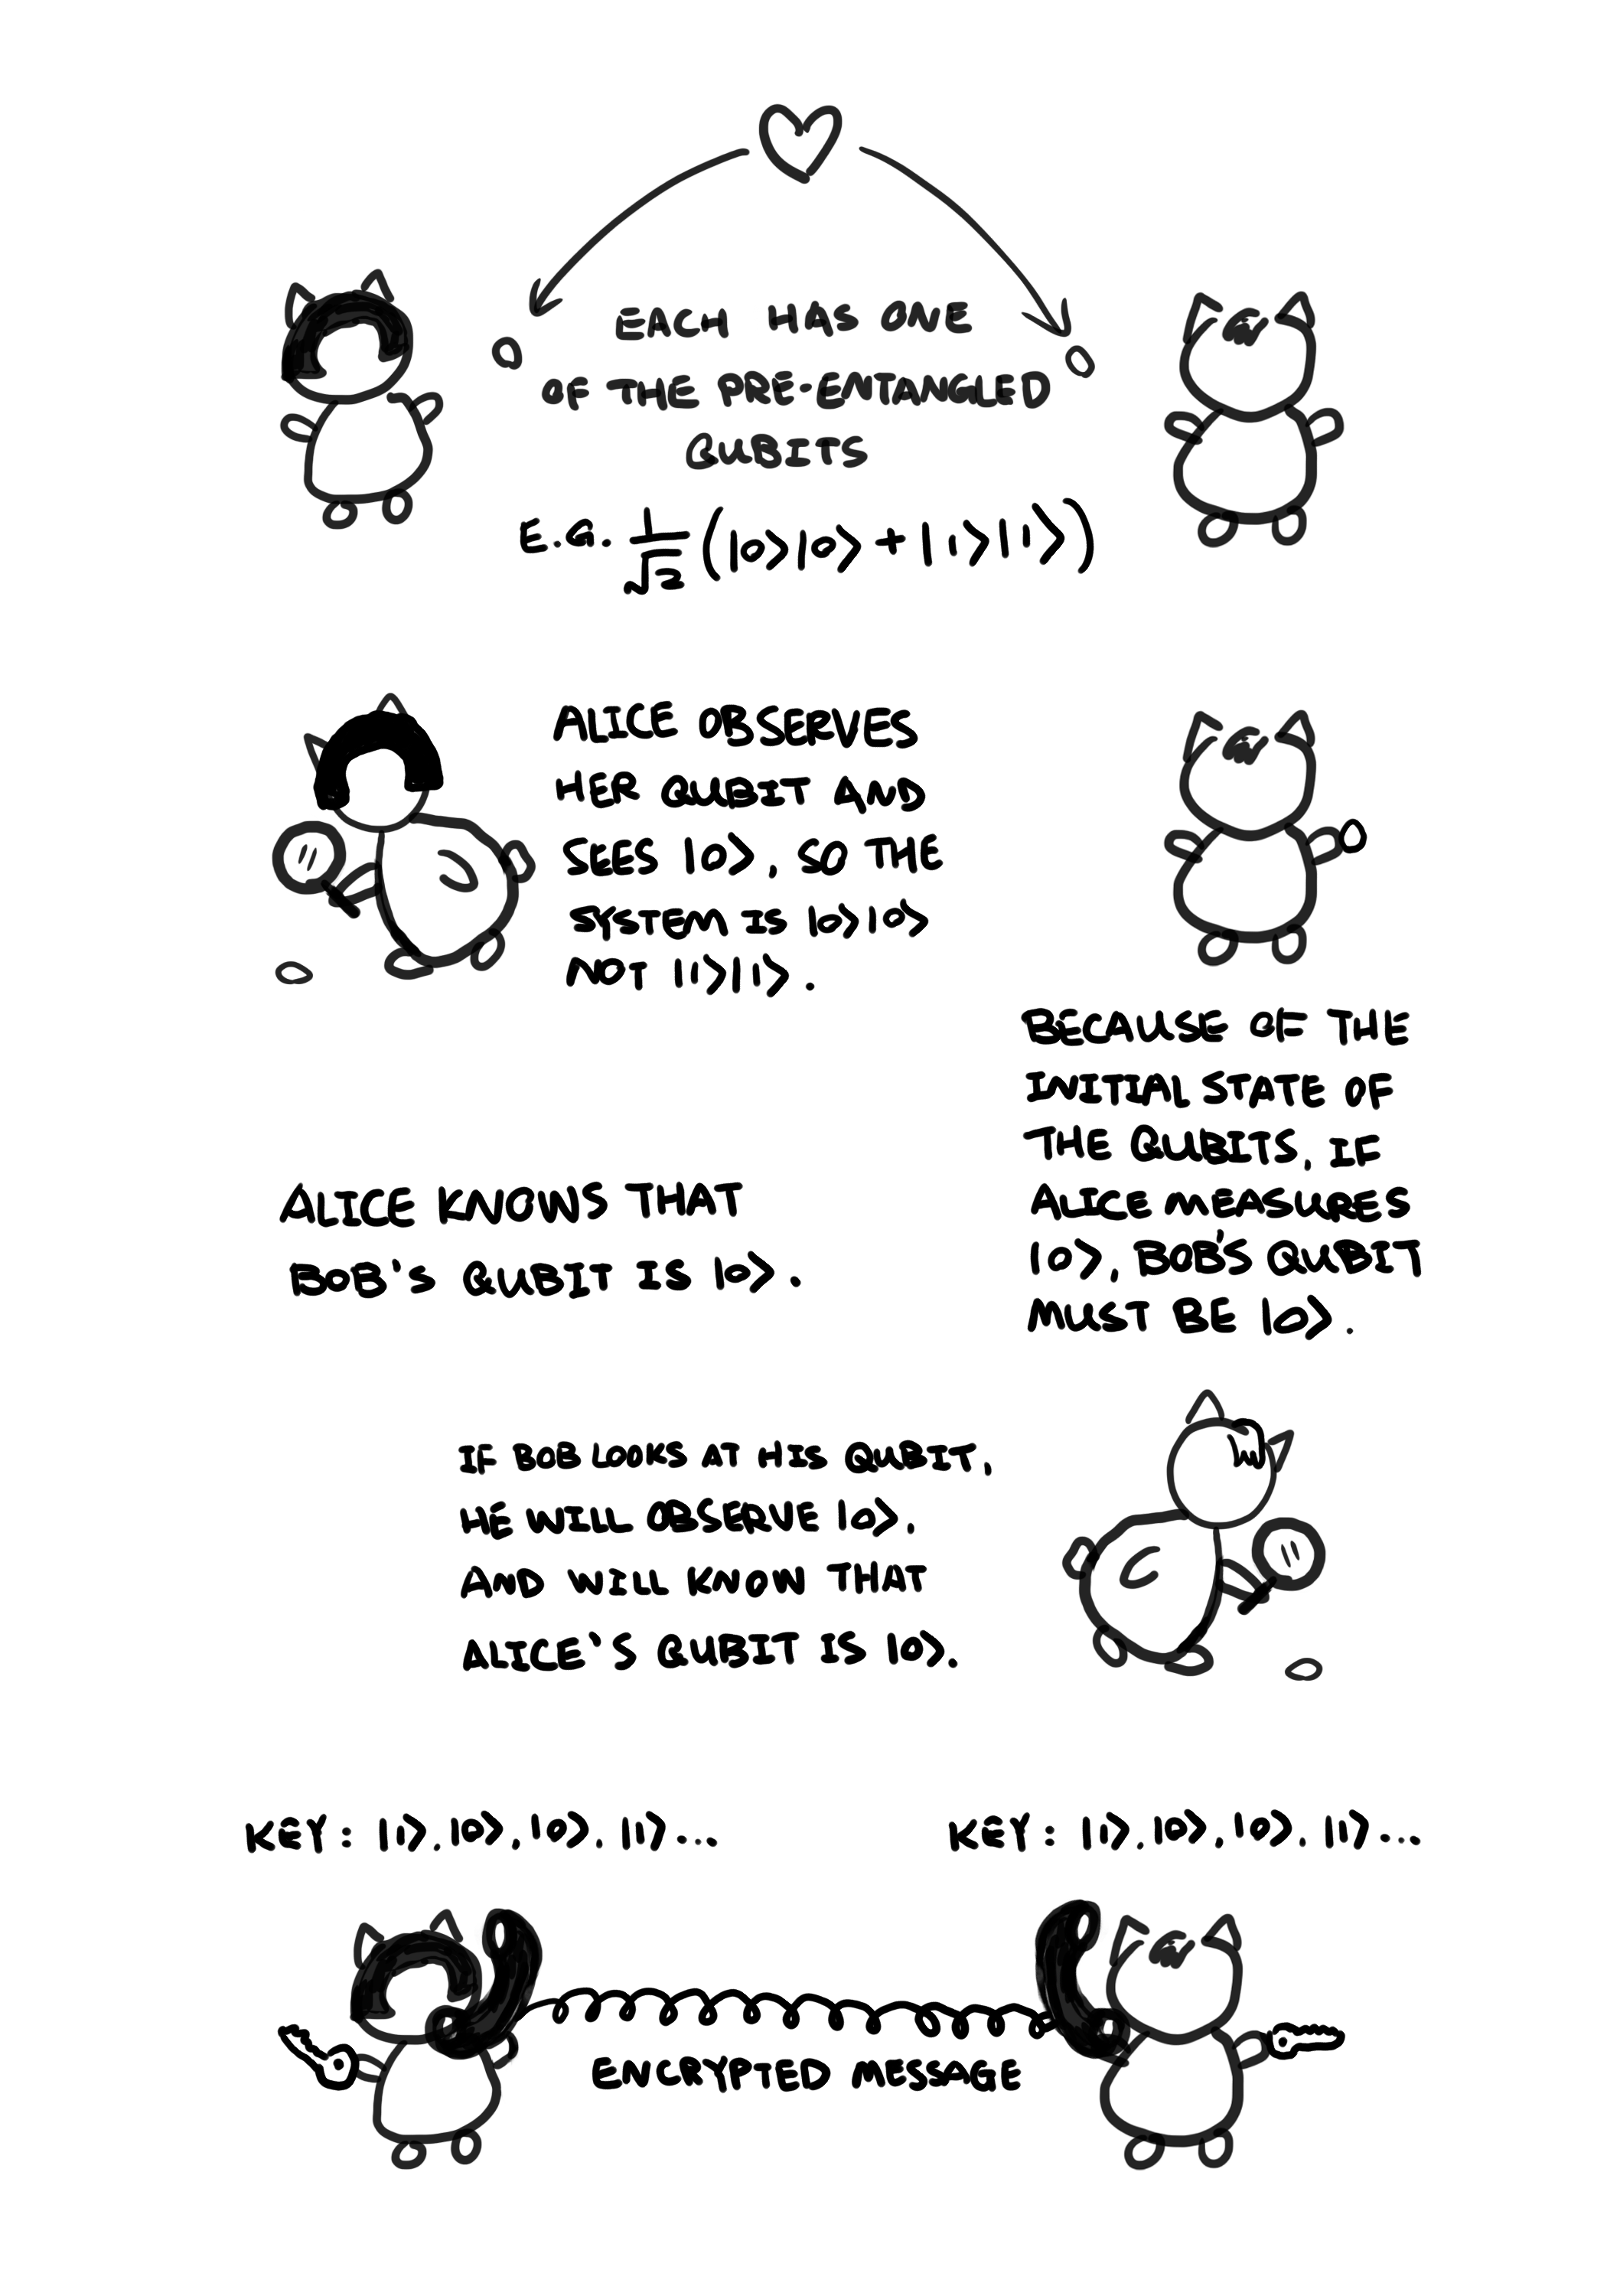 EACH HAS ONE
OF THE PRE-ENTANGLED
QUBITS
E.G. 1/√2 (|0>|0> + |1>|1>)
ALICE OBSERVES
HER QUBIT AND
SEES |0>, SO THE
SYSTEM IS |0>|0>
NOT |1>|1>.
BECAUSE OF THE
INITIAL STATE OF
THE QUBITS, IF
ALICE MEASURES
|0>, BOB'S QUBIT
MUST BE |0>.
ALICE KNOWS THAT
BOB'S QUBIT IS |0>.
IF BOB LOOKS AT HIS QUBIT,
HE WILL OBSERVE |0>,
AND WILL KNOW THAT
ALICE'S QUBIT IS |0>.
KEY: |1>, |0>, |0>, |1>...
KEY: |1>, |0>, |0>, |1>...
ENCRYPTED MESSAGE